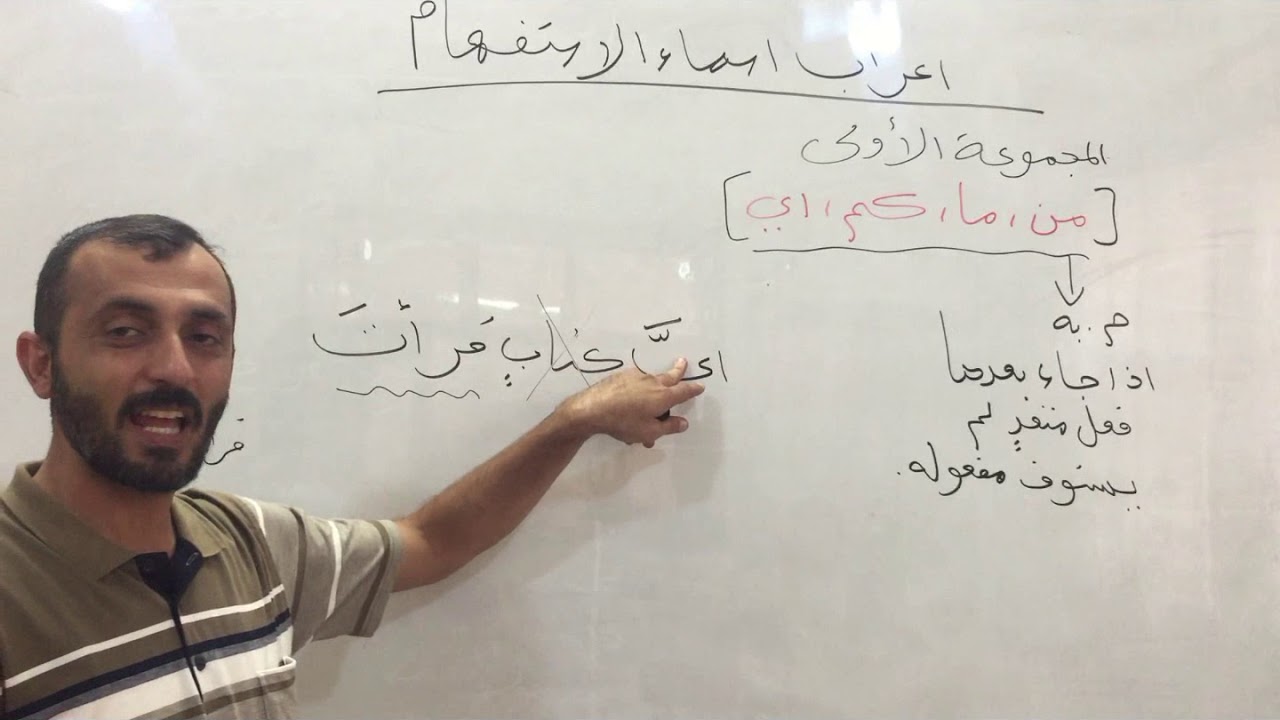 اعراب اسماء الاستفهام
المجموعة الأولى
[من ، ما ، كم ، اي]
م . به
اذا جاء بعدها
فعل متعدٍ لم
يستوف مفعوله .
ايَّ كتابٍ قرأتَ